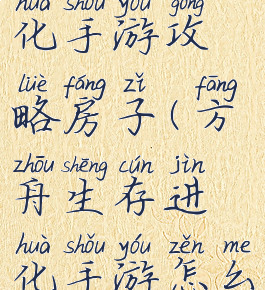 huà shǒu yóu gōng
化手游攻
lüè fáng zǐ fāng
略房子(方
zhōu shēng cún jìn
舟生存进
huà shǒu yóu zěn me
化手游怎么